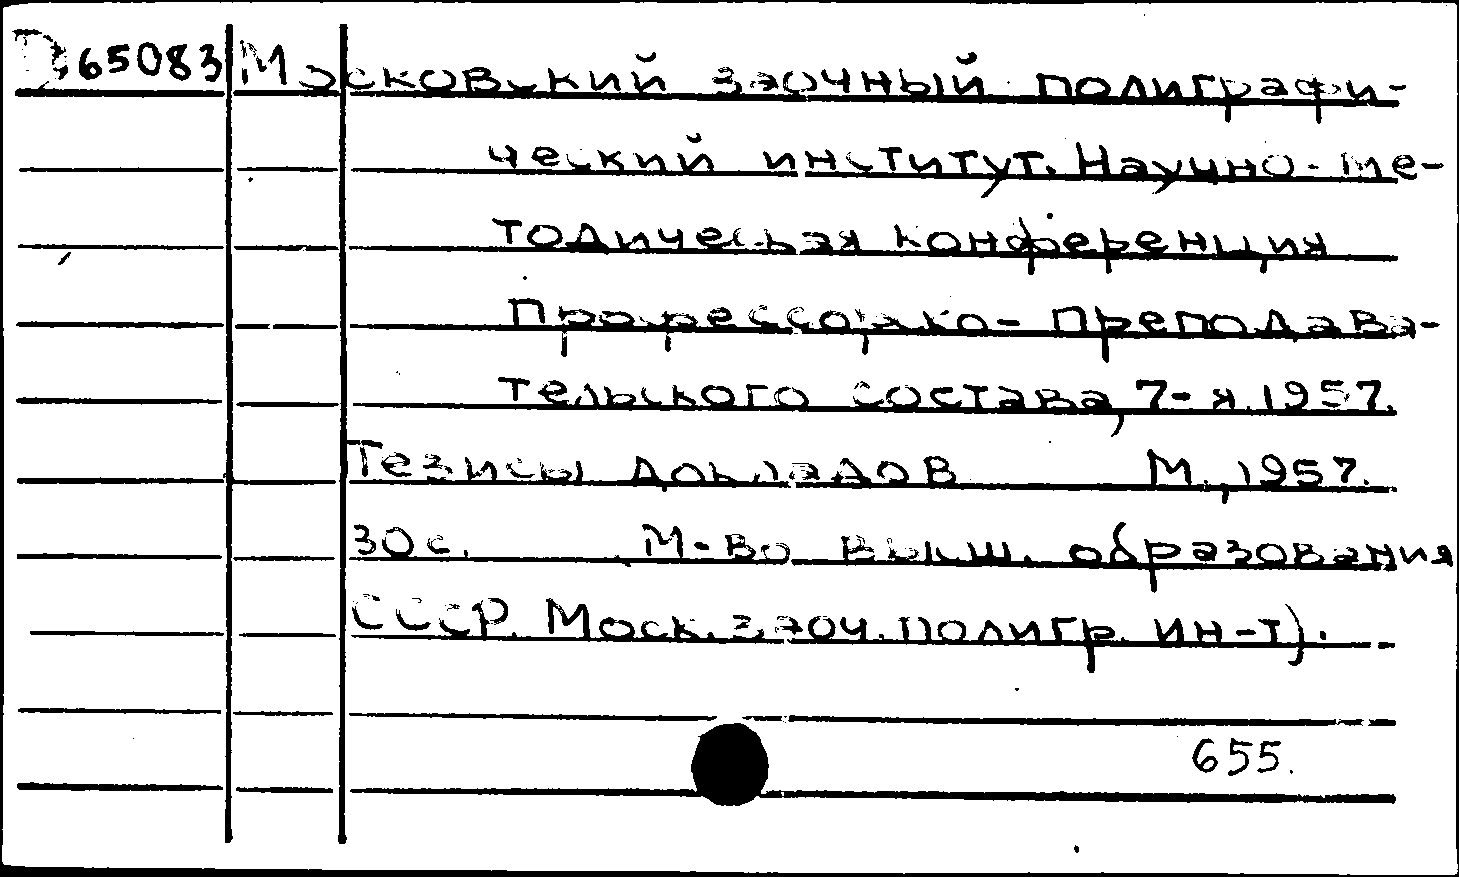 D 65083 Московский заочный полиграфи-
ческий институт. Научно-ме-
тодическая конференция
профессорско-преподава-
тельского состава, 7-я. 1957.
Тезисы докладов М., 1957.
30 с. М-во высш. образования
СССР. Моск. заоч. полигр. ин-т).
655.